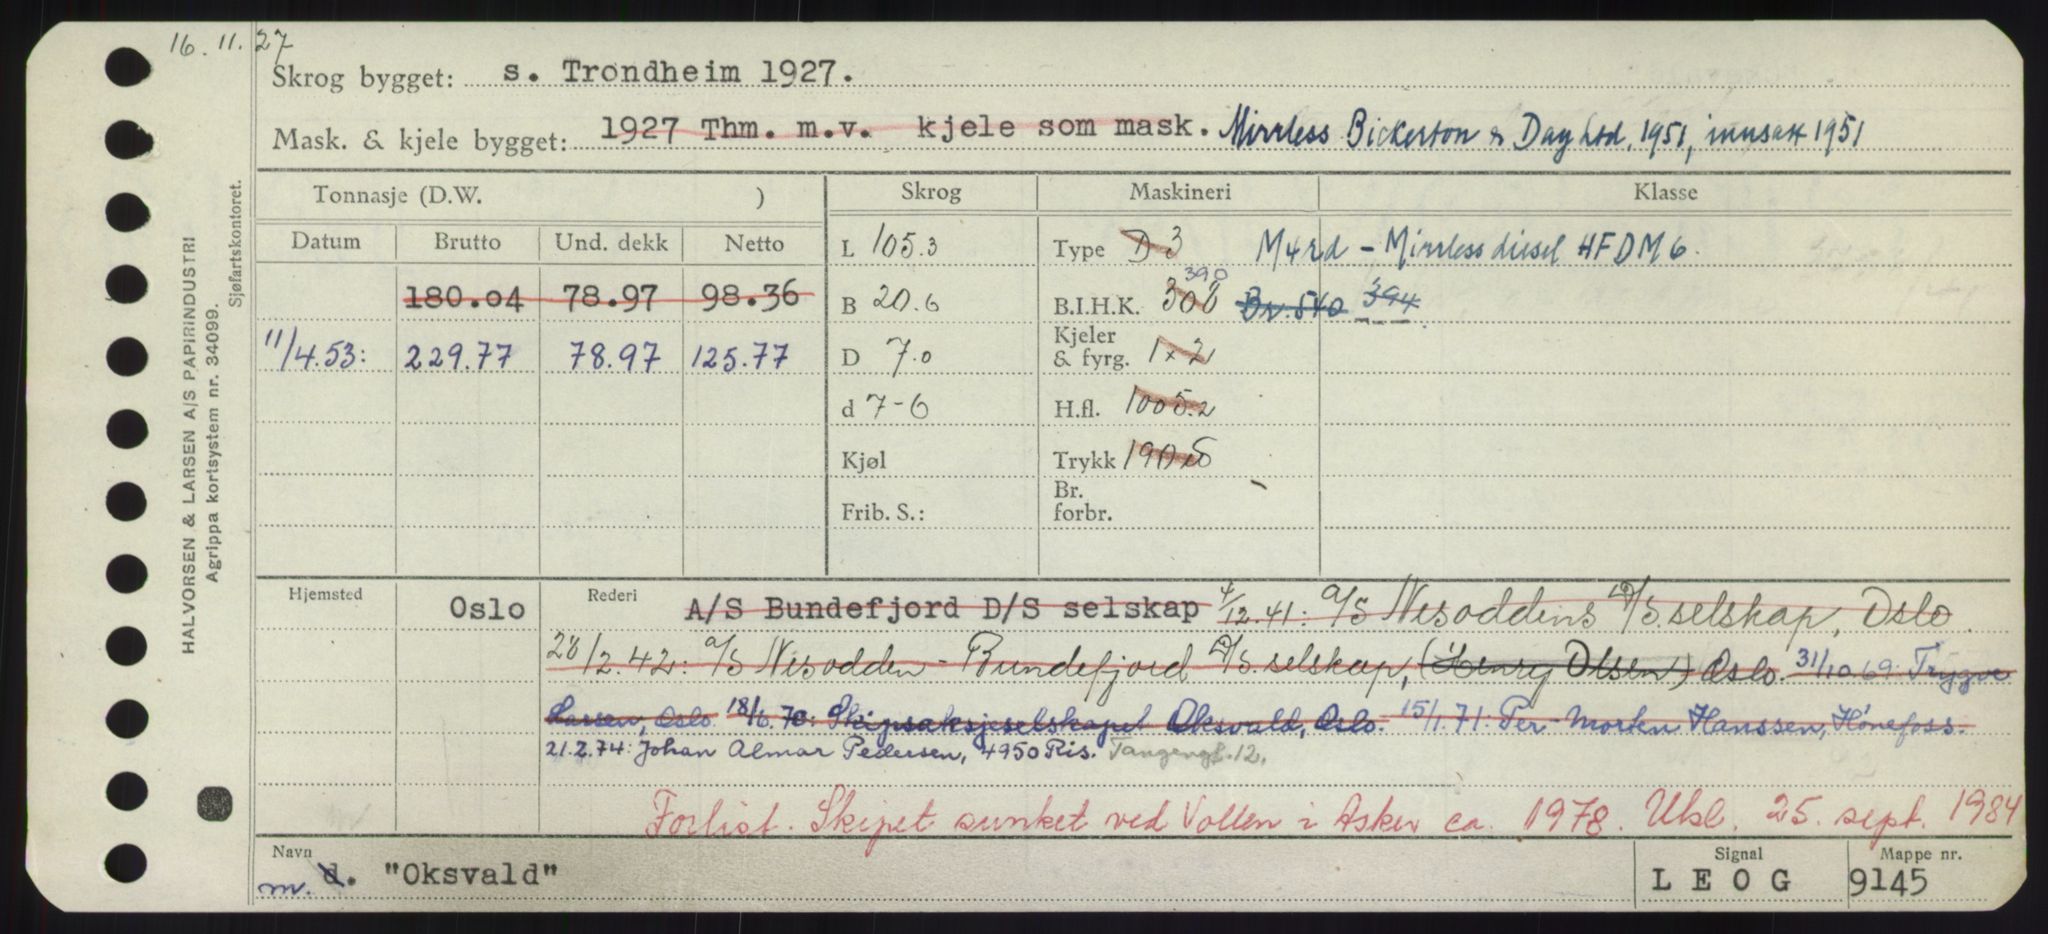 16.11.27
Skrog bygget: s. Trondheim 1927.
Mask. & kjele bygget: 1927 Thm. m.v. kjele som mask. Mirrless Bickerton & Day Ltd, 1951, innsatt 1951
HALVORSEN & LARSEN A/S PAPIRINDUSTRI
Agrippa kortsystem nr. 34099.
Sjøfartskontoret.
Tonnasje (D.W. ) Skrog Maskineri Klasse
Datum Brutto Und. dekk Netto
L 105.3 Type D 3 M4rd - Mirrless diesel HFDM6.
390
180.04 78.97 98.36 B 20.6 B.I.H.K. 300 Br. 540 394
11/4.53: 229.77 78.97 125.77 D 7.0 Kjeler & fyrg. 1x2
d 7-6 H.fl. 1005.2
Kjøl Trykk
Frib. S.: Br. forbr.
Hjemsted Oslo Rederi A/S Bundefjord D/S selskap 4/12.41: A/S Nesoddens D/S.selskap, Oslo.
28/2.42: A/S Nesodden-Bundefjord D/S.selskap, (Henry Olsen) Oslo. 31/10.69: Trygve
Larsen, Oslo 18/6.70: Skipsaksjeselskapet Oksvald, Oslo. 15/1.71: Per-Morten Hanssen, Hønefoss.
21.2.74: Johan Almar Pedersen, 4950 Ris. Tangengt. 12.
Forlist. Skipet sunket ved Vollen i Asker ca. 1978. Utsl. 25. sept. 1984
Navn Signal Mappe nr.
m. d. "Oksvald" L E O G 9145